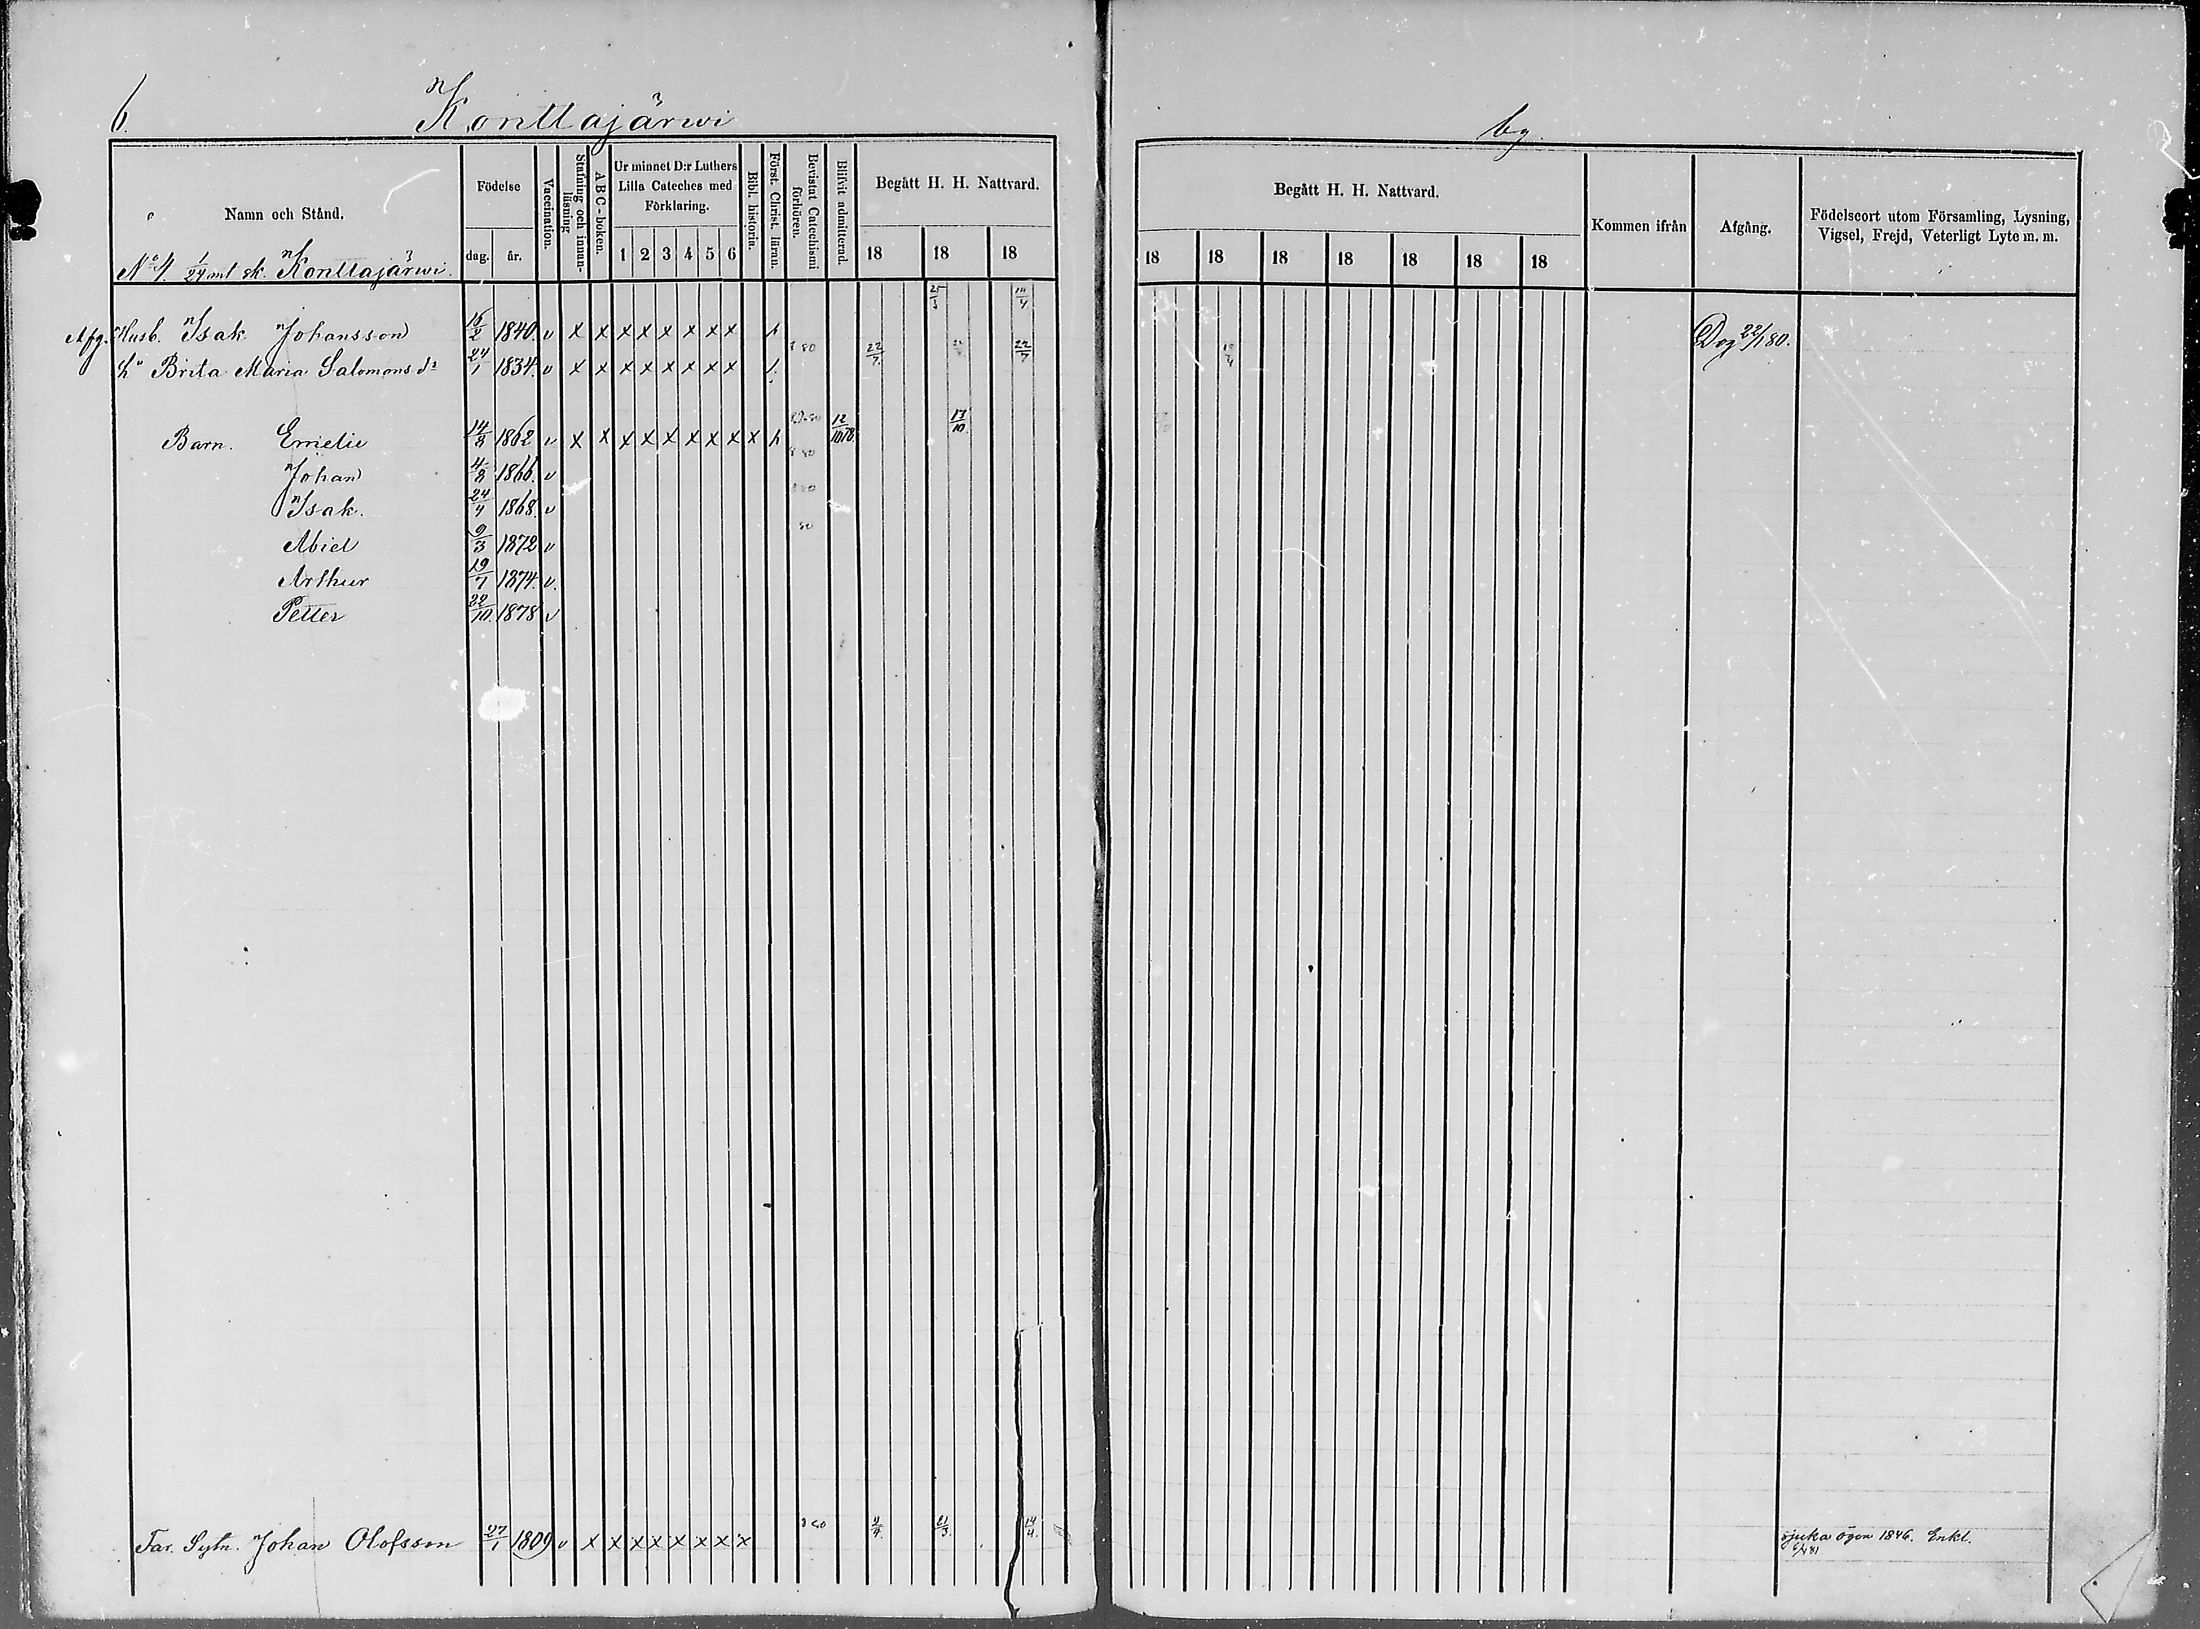 6. Konttajärwi by.
Namn och Stånd. Födelse dag. år. Vaccination. Stafning och innanläsning ABC-boken. Ur minnet D:r Luthers Lilla Cateches med Förklaring. 1 2 3 4 5 6 Bibl. historia. Först. Christ. läran. Bevistat Catechismi förhören. Blifvit admitterad. Begått H. H. Nattvard. 18 18 18
Begått H. H. Nattvard. 18 18 18 18 18 18 18 Kommen ifrån Afgång. Födelseort utom Församling, Lysning, Vigsel, Frejd, Veterligt Lyte m. m.
No 4. 1/24 mt sk. Konttajärwi.
25/3 14/4
Afg. Husb. Isak Johansson 16/2 1840. v x x x x x x x x Dog 22/1 80.
h:u Brita Maria Salomons d:r 24/1 1834. v x x x x x x x x 80 22/7 22/7
Barn. Emelie 14/8 1862 v x x x x x x x x x 12/10 78 17/10
Johan 4/8 1866. v
Isak. 24/4 1868. v
Abiel 9/3 1872 v
Arthur 19/7 1874. v.
Petter 22/10 1878 v
Far. Sytn. Johan Olofsson 27/1 1809 v x x x x x x x x 14/4. sjuka ögon 1846. Enkl.